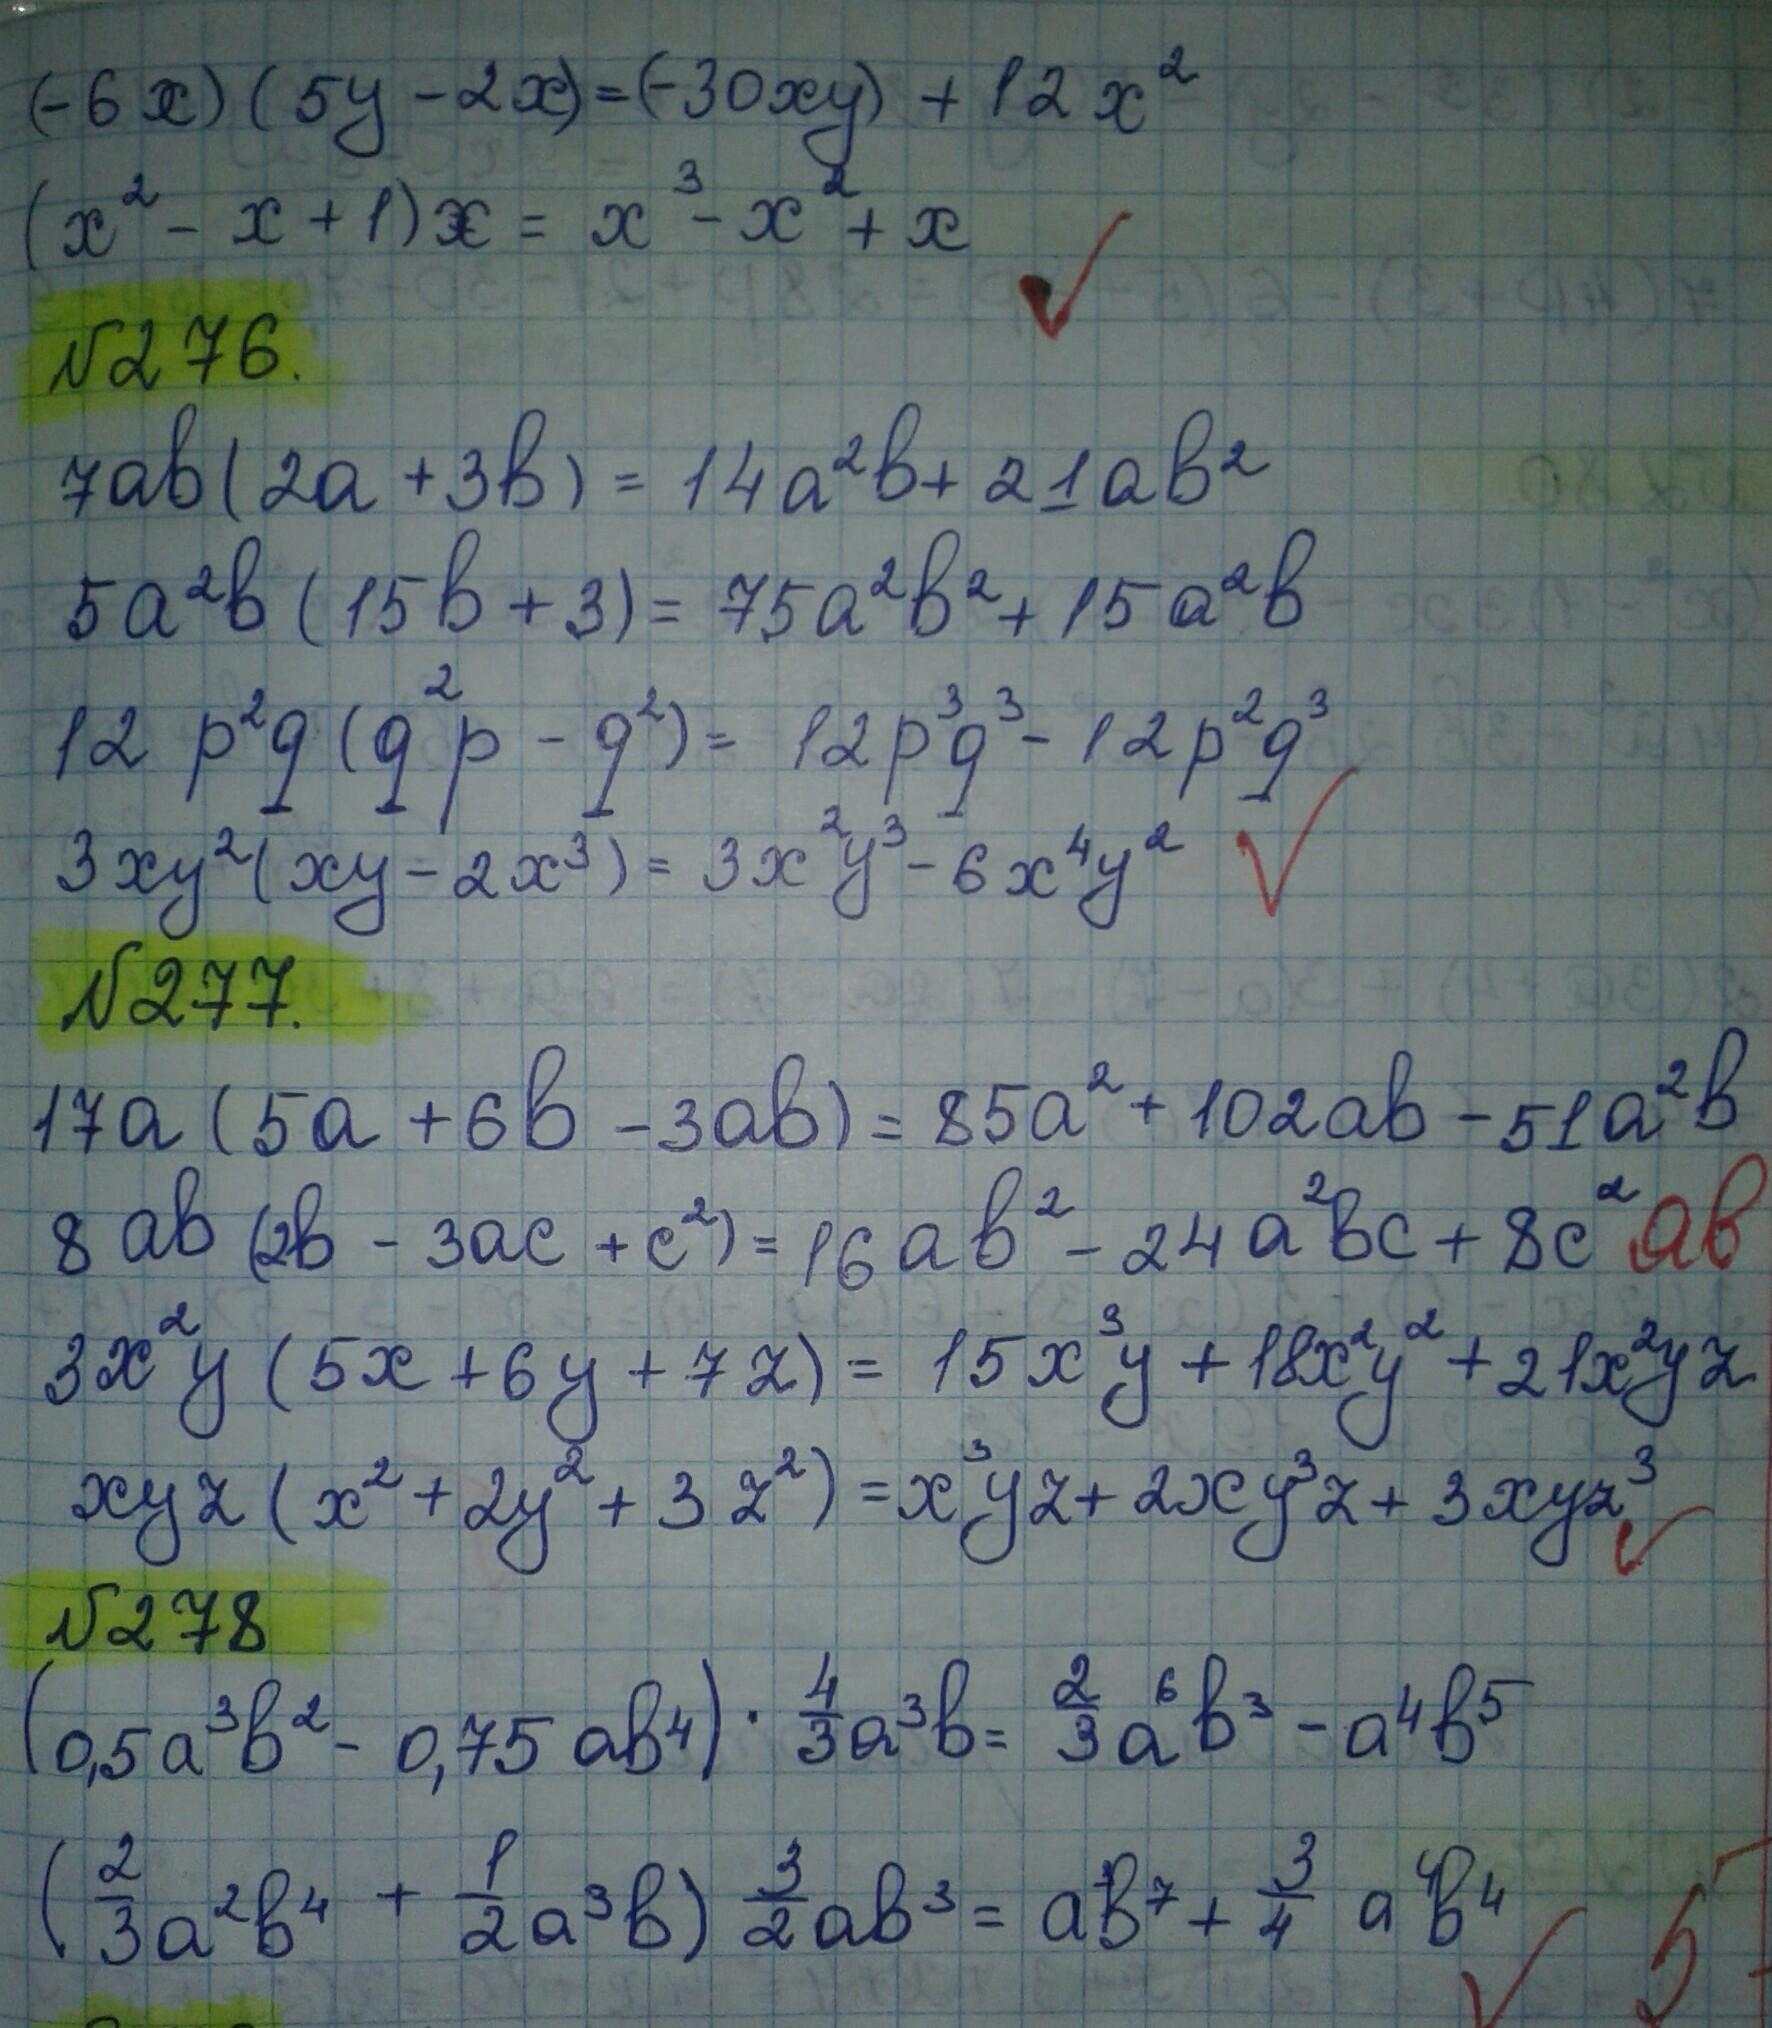 (-6x)(5y-2x)=(-30xy)+12x²
(x²-x+1)x=x³-x²+x
№276.
7ab(2a+3b)=14a²b+21ab²
5a²b(15b+3)=75a²b²+15a²b
12p²q(q²p-q²)=12p³q³-12p²q³
3xy²(xy-2x³)=3x²y³-6x⁴y²
№277.
17a(5a+6b-3ab)=85a²+102ab-51a²b
8ab(2b-3ac+c²)=16ab²-24a²bc+8c²ab
3x²y(5x+6y+7z)=15x³y+18x²y²+21x²yz
xyz(x²+2y²+3z²)=x³yz+2xy³z+3xyz³
№278
(0,5a³b²-0,75ab⁴)·4/3a³b=2/3a⁶b³-a⁴b⁵
(2/3a²b⁴+1/2a³b)3/2ab³=a³b⁷+3/4a⁴b⁴
5